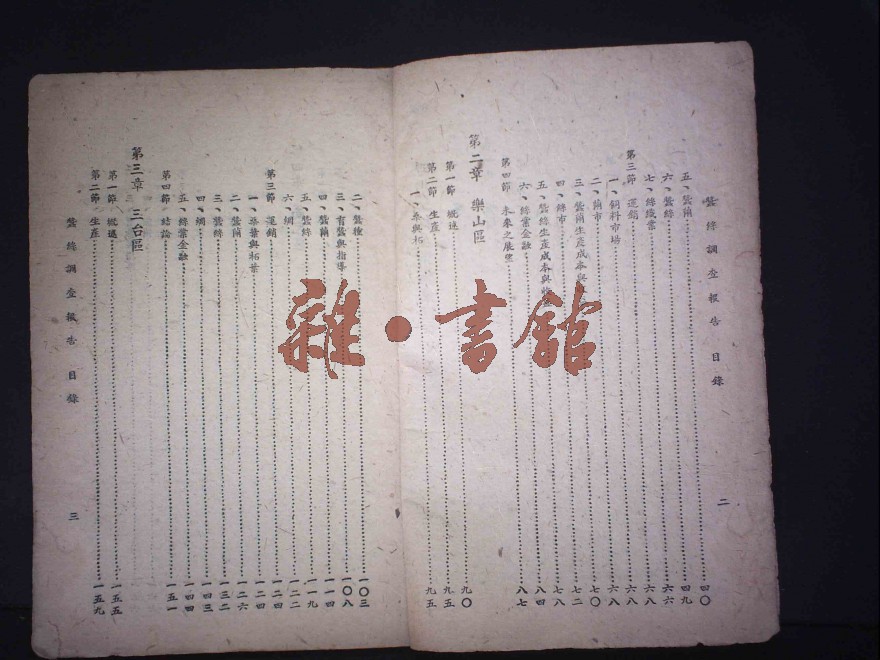 蠶絲調查報告 目錄 二
五、蠶繭 四〇
六、蠶絲 四九
七、絲織業 六六
第三節 運銷 六八
一、飼料市場 六八
二、繭市 六八
三、蠶繭生產成本與 七〇
四、絲市 七二
五、蠶絲生產成本與 七八
六、絲業金融 八四
第四節 未來之展望 八七
第二章 樂山區
第一節 概述 九〇
第二節 生產 九五
一、桑與柘 九五
二、蠶種 一〇三
三、育蠶與指導 一〇八
四、蠶繭 一一四
五、蠶絲 一一九
六、綢 一二二
第三節 運銷 一二四
一、桑葉與柘葉 一二四
二、蠶繭 一二六
三、蠶絲 一三二
四、綢 一四三
五、絲業金融 一四四
第四節 結論 一五一
第三章 三台區
第一節 概述 一五五
第二節 生產 一五九
蠶絲調查報告 目錄 三
雜·書館